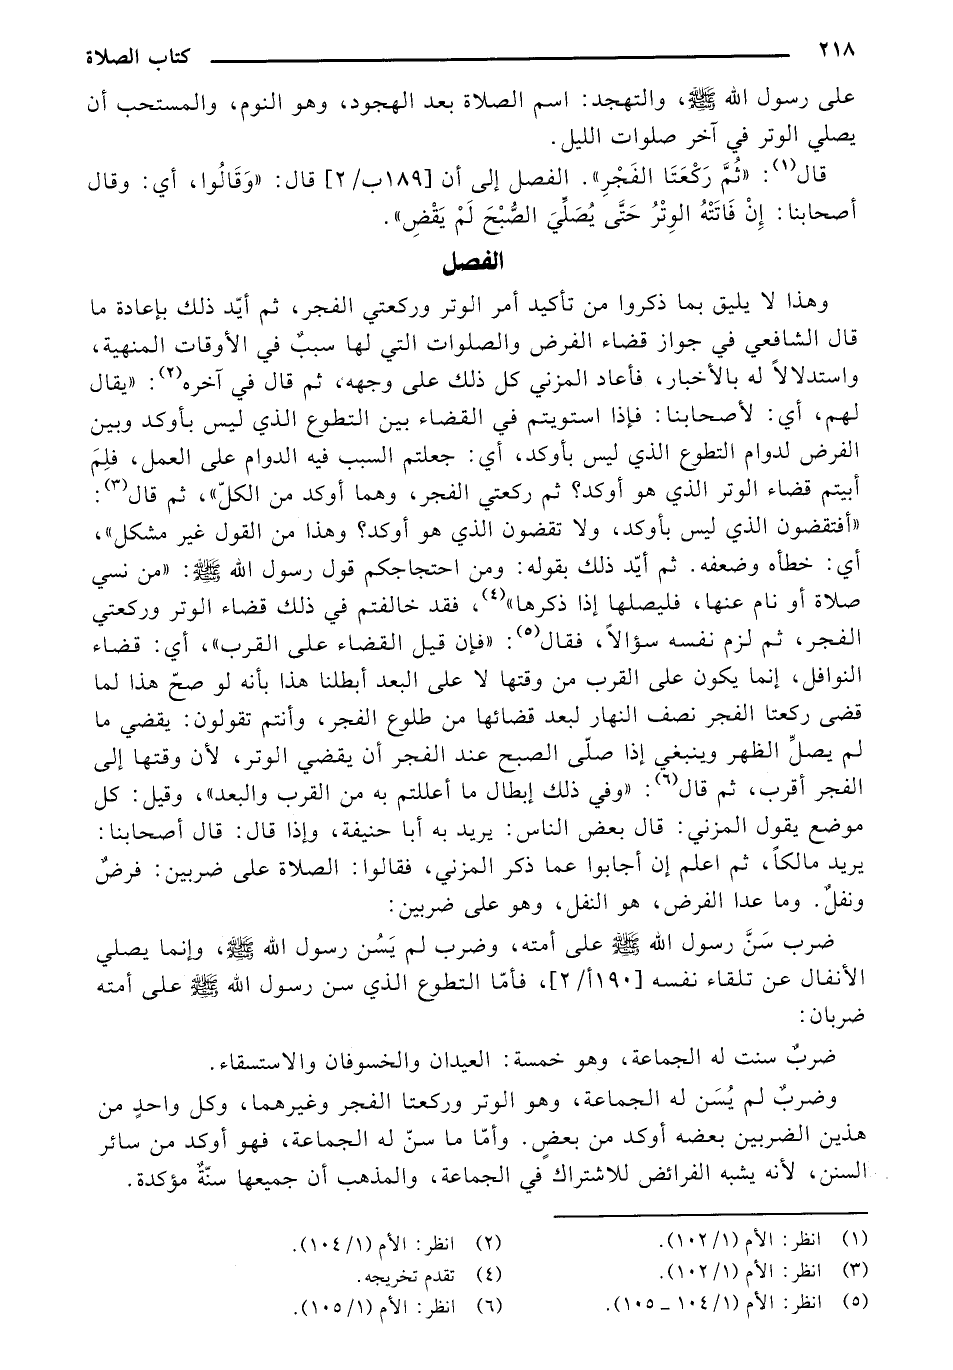 ٢١٨ كتاب الصلاة
على رسول الله ﷺ، والتهجد: اسم الصلاة بعد الهجود، وهو النوم، والمستحب أن
يصلي الوتر في آخر صلوات الليل.
قال(١): «ثُمَّ رَكْعَتَا الفَجْرِ». الفصل إلى أن [١٨٩ب/ ٢] قال: «وَقَالُوا، أي: وقال
أصحابنا: إِنْ فَاتَتْهُ الوِتْرُ حَتَّى يُصَلِّيَ الصُّبْحَ لَمْ يَقْضِ».
الفصل
وهذا لا يليق بما ذكروا من تأكيد أمر الوتر وركعتي الفجر، ثم أيّد ذلك بإعادة ما
قال الشافعي في جواز قضاء الفرض والصلوات التي لها سببٌ في الأوقات المنهية،
واستدلالاً له بالأخبار، فأعاد المزني كل ذلك على وجهه، ثم قال في آخره(٢): «يقال
لهم، أي: لأصحابنا: فإذا استويتم في القضاء بين التطوع الذي ليس بأوكد وبين
الفرض لدوام التطوع الذي ليس بأوكد، أي: جعلتم السبب فيه الدوام على العمل، فلِمَ
أبيتم قضاء الوتر الذي هو أوكد؟ ثم ركعتي الفجر، وهما أوكد من الكلّ»، ثم قال(٣):
«أفتقضون الذي ليس بأوكد، ولا تقضون الذي هو أوكد؟ وهذا من القول غير مشكل»،
أي: خطأه وضعفه. ثم أيّد ذلك بقوله: ومن احتجاجكم قول رسول الله ﷺ: «من نسي
صلاة أو نام عنها، فليصلها إذا ذكرها»(٤)، فقد خالفتم في ذلك قضاء الوتر وركعتي
الفجر، ثم لزم نفسه سؤالاً، فقال(٥): «فإن قيل القضاء على القرب»، أي: قضاء
النوافل، إنما يكون على القرب من وقتها لا على البعد أبطلنا هذا بأنه لو صحّ هذا لما
قضى ركعتا الفجر نصف النهار لبعد قضائها من طلوع الفجر، وأنتم تقولون: يقضي ما
لم يصلِّ الظهر وينبغي إذا صلّى الصبح عند الفجر أن يقضي الوتر، لأن وقتها إلى
الفجر أقرب، ثم قال(٦): «وفي ذلك إبطال ما أعللتم به من القرب والبعد»، وقيل: كل
موضع يقول المزني: قال بعض الناس: يريد به أبا حنيفة، وإذا قال: قال أصحابنا:
يريد مالكاً، ثم اعلم إن أجابوا عما ذكر المزني، فقالوا: الصلاة على ضربين: فرضٌ
ونفلٌ. وما عدا الفرض، هو النفل، وهو على ضربين:
ضرب سَنَّ رسول الله ﷺ على أمته، وضرب لم يَسُن رسول الله ﷺ، وإنما يصلي
الأنفال عن تلقاء نفسه [١٩٠أ/ ٢]، فأمّا التطوع الذي سن رسول الله ﷺ على أمته
ضربان:
ضربٌ سنت له الجماعة، وهو خمسة: العيدان والخسوفان والاستسقاء.
وضربٌ لم يُسَن له الجماعة، وهو الوتر وركعتا الفجر وغيرهما، وكل واحدٍ من
هذين الضربين بعضه أوكد من بعضٍ. وأمّا ما سنّ له الجماعة، فهو أوكد من سائر
السنن، لأنه يشبه الفرائض للاشتراك في الجماعة، والمذهب أن جميعها سنّةٌ مؤكدة.
(١) انظر: الأم (١/ ١٠٢). (٢) انظر: الأم (١/ ١٠٤).
(٣) انظر: الأم (١/ ١٠٢). (٤) تقدم تخريجه.
(٥) انظر: الأم (١/ ١٠٤ _ ١٠٥). (٦) انظر: الأم (١/ ١٠٥).